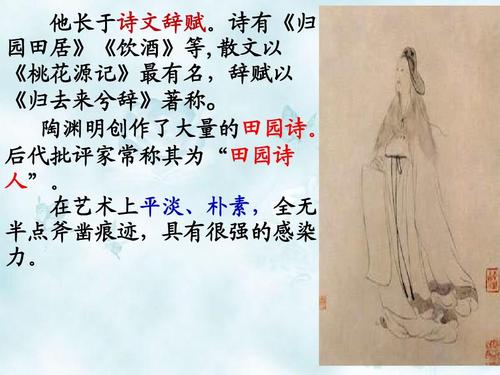 他长于诗文辞赋。诗有《归
园田居》《饮酒》等,散文以
《桃花源记》最有名，辞赋以
《归去来兮辞》著称。
陶渊明创作了大量的田园诗。
后代批评家常称其为“田园诗
人”。
在艺术上平淡、朴素，全无
半点斧凿痕迹，具有很强的感染
力。